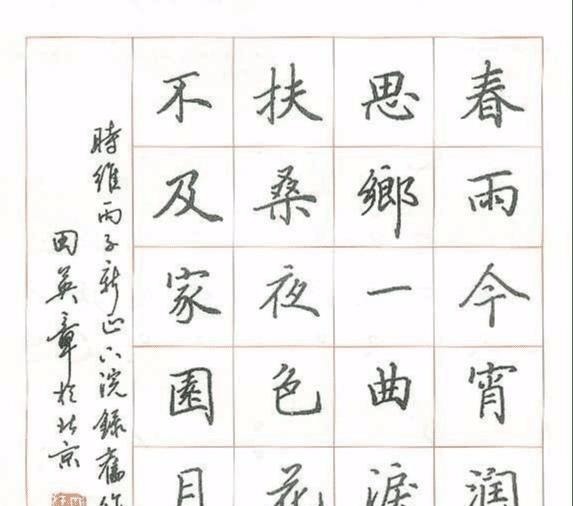 春雨今宵润
思鄉一曲淚
扶桑夜色花
不及家園月
時維丙子新正下浣錄舊作
田英章於北京